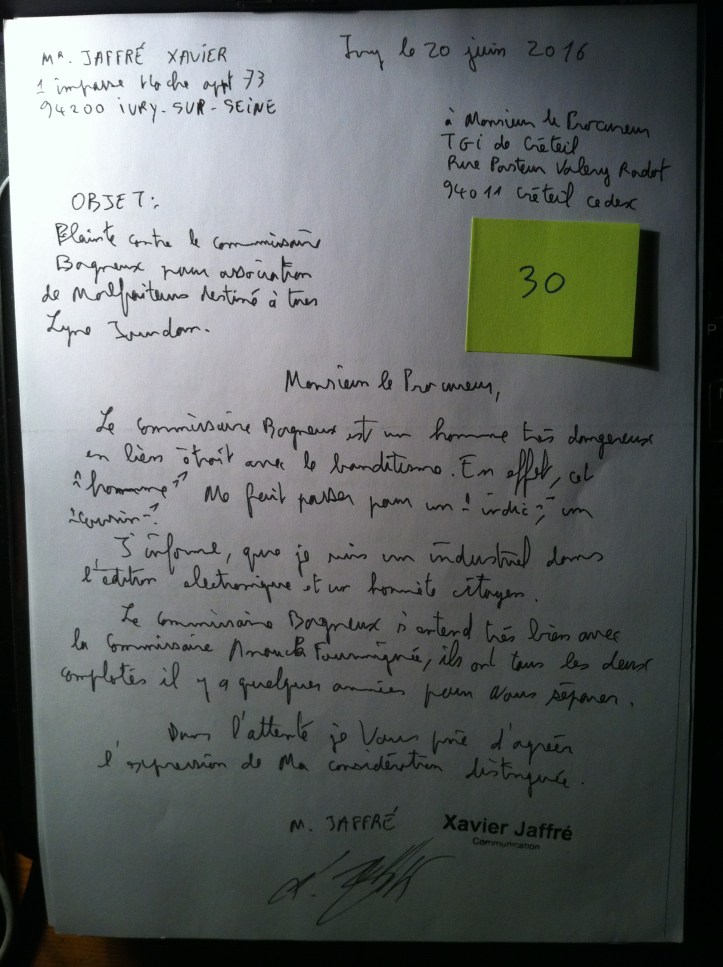 Mr. JAFFRÉ XAVIER
1 impasse Hoche appt 73
94200 IVRY-SUR-SEINE
Ivry le 20 juin 2016
à Monsieur le Procureur
TGI de Créteil
Rue Pasteur Valery Radot
94011 Créteil cedex
OBJET:
Plainte contre le commissaire
Bagneux pour association
de Malfaiteurs destiné à tuer
Lyne
30
Monsieur le Procureur,
Le commissaire Bagneux est un homme très dangereux
en lien étroit avec le banditisme. En effet, cet
"homme" Me fait passer pour un "indic", un
"cousin".
J'informe, que je suis un industriel dans
l'édition electronique et un honnête citoyen.
Le commissaire Bagneux s'entend très bien avec
la commissaire Anouck Fourmigné, ils ont tous les deux
complotés il y a quelques années pour nous séparer.
Dans l'attente je Vous prie d'agréer
l'expression de Ma considération distinguée.
M. JAFFRÉ
Xavier Jaffré
Communication